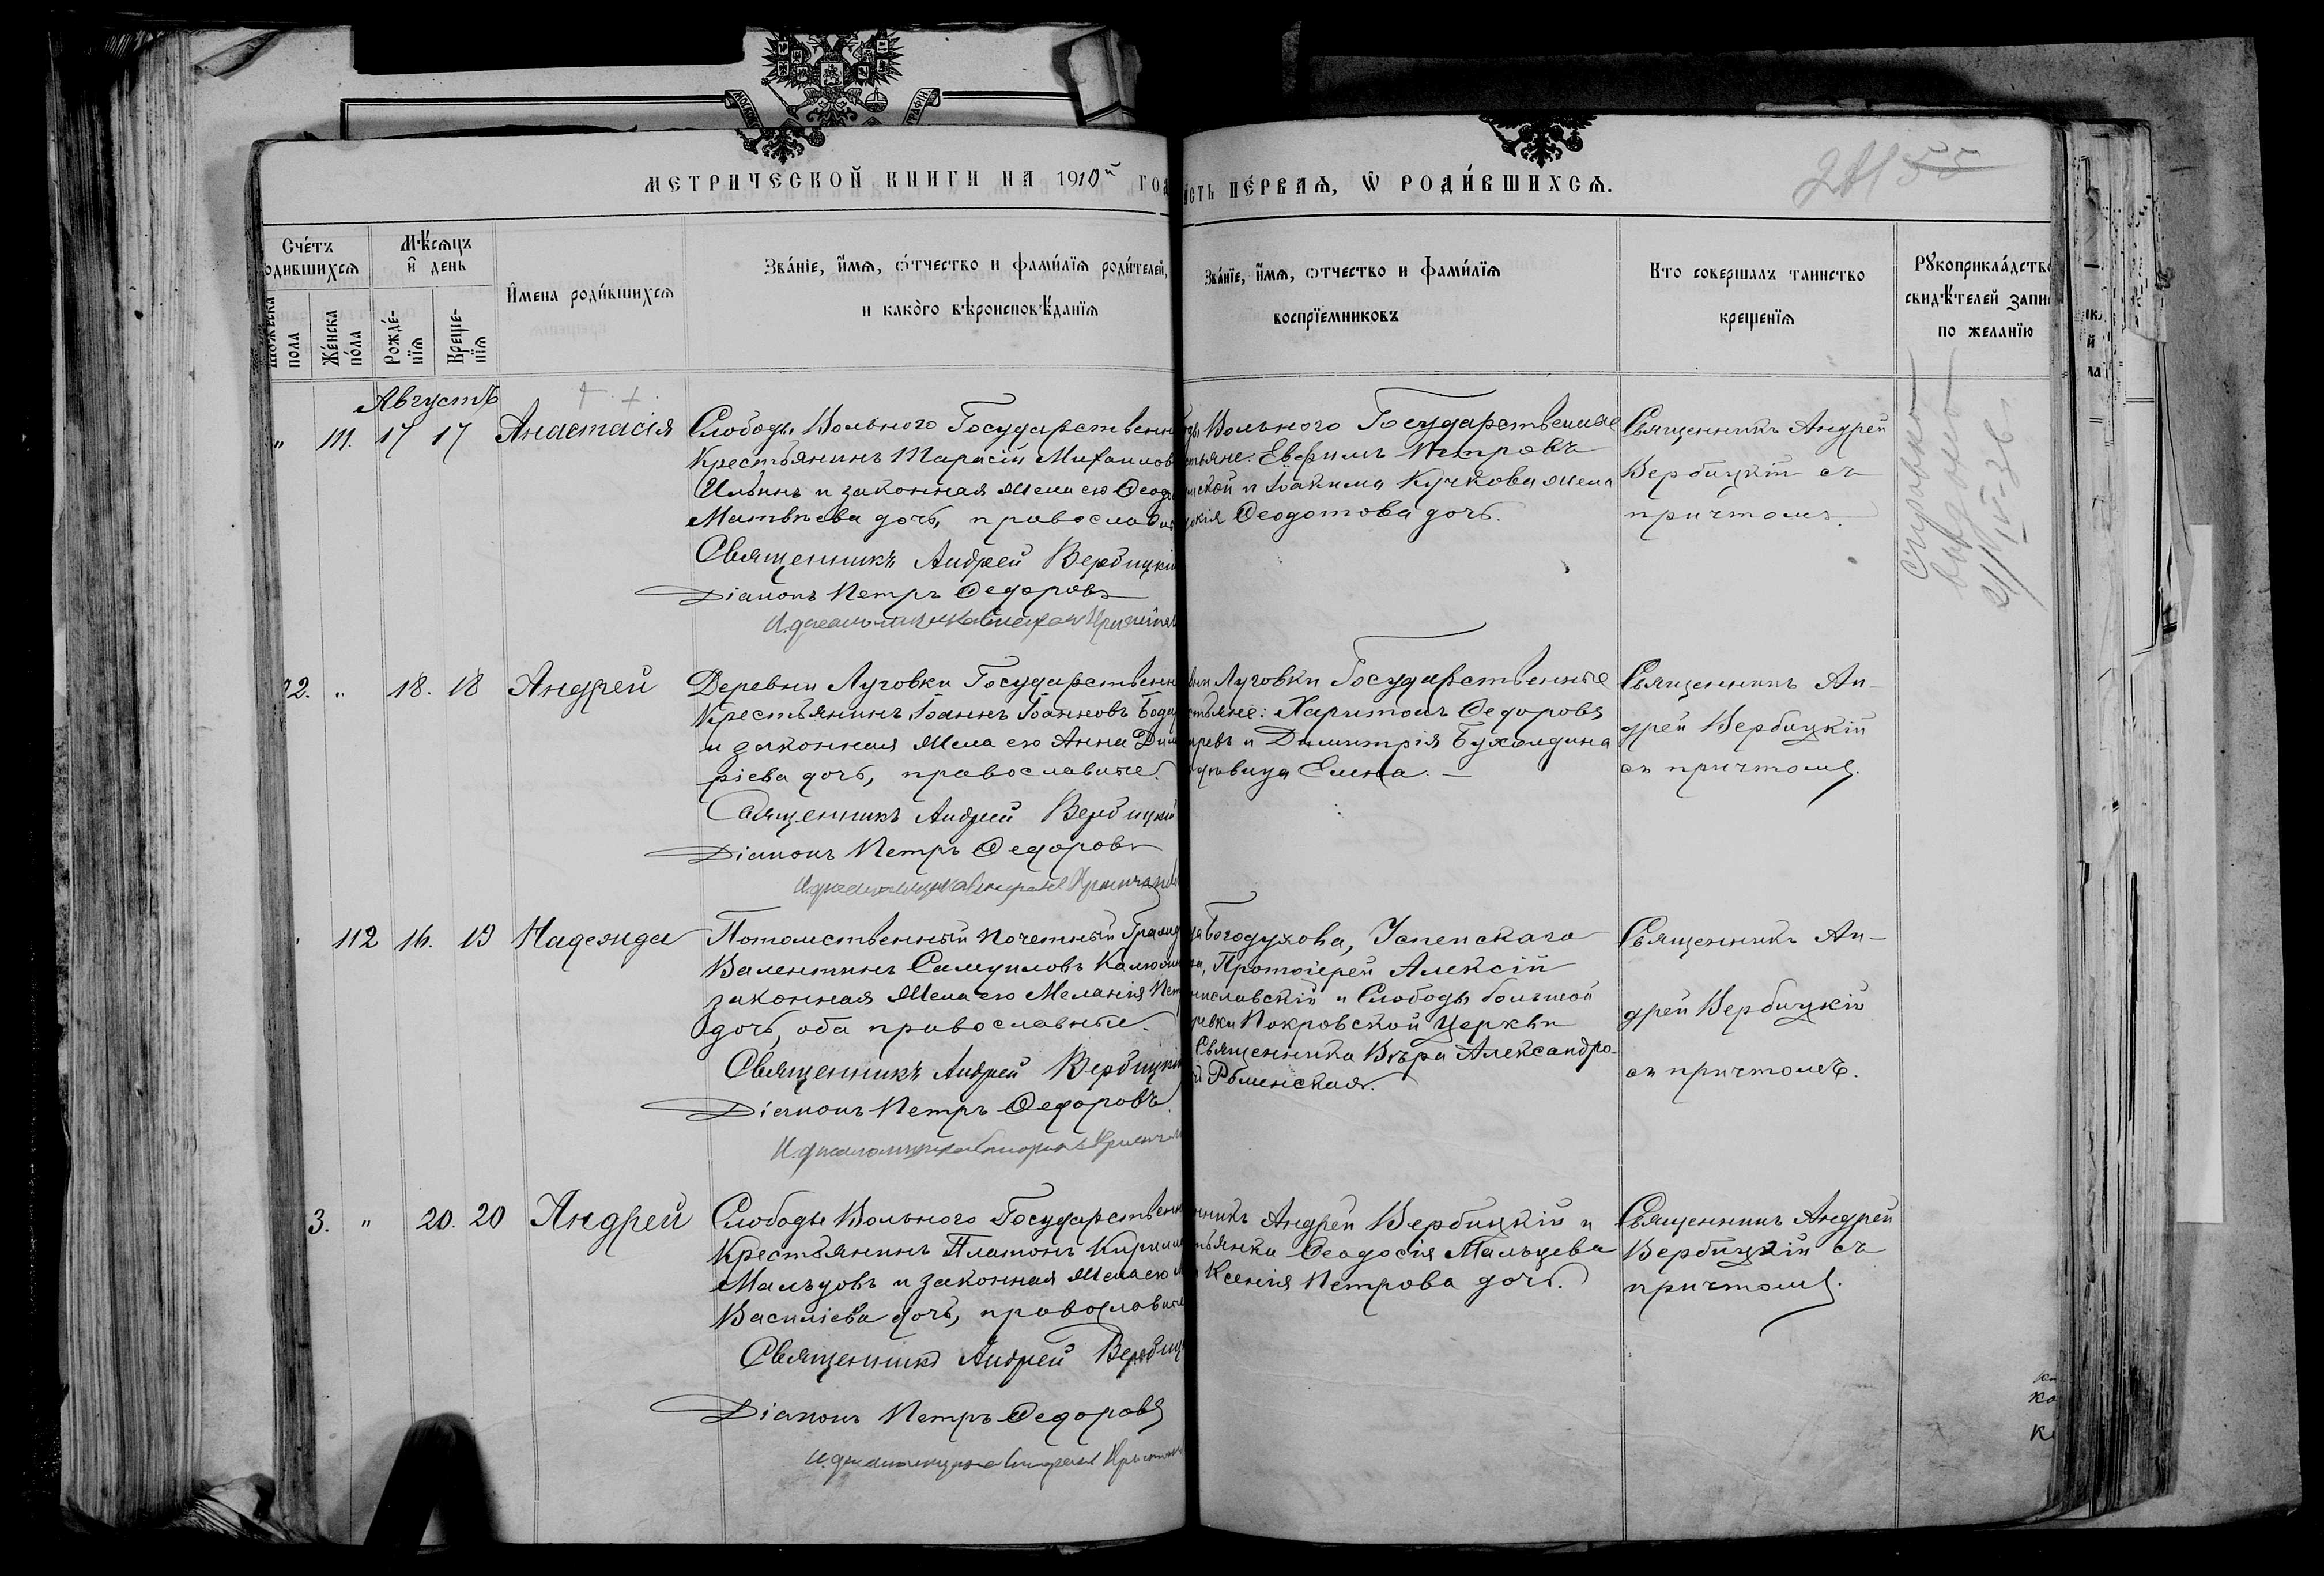 МЕТРИЧЕСКОЙ КНИГИ НА 1910й ГОД
СТЬ ПЕ́РВАѦ, Ѡ РОДИ́ВШИХСѦ.
Сче́тъ
одившихсѧ
пола
Же́нска
по́ла
Мѣ́сѧцъ
и день
Рожде́-
нїѧ
Креще-
нїѧ
И҆мена роди́вшихсѧ
Зва́нїе, и҆́мѧ, ѻ҆́тчество и фами́лїѧ роди́телей,
и како́го вѣроисповѣ́данїѧ
Зва́нїе, и҆́мѧ, ѻтчество и Фами́лїѧ
воспрїемниковъ
Кто совершалъ таинство
крещенїѧ
Рꙋкоприкла́дство
свидѣ́телей запи
по желанїю
Августъ
" 111. 17 17 Анастасія
Слободы Вольного Государственн
Крестьянинъ Тарасій Михаилов
Ильинъ и законная жена его Феодо
Матвѣева дочь, православн
Священникъ Андрей Вербицкій
Діаконъ Петръ Федоровъ
ды Вольного Государственные
стьяне: Евфимъ Петровъ
нской и Іоакима Кучкова жена
Феодотова дочь.
Священникъ Андрей
Вербицкій съ
причтомъ.
Справка
выдана
21/IV-36
2. " 18. 18 Андрей
Деревни Луговки Государственн
Крестьянинъ Іоаннъ Іоанновъ Бода
и законная жена его Анна Дим
ріева дочь, православные.
Священникъ Андрей Вербицкій
Діаконъ Петръ Федоровъ
вни Луговки Государственные
стьяне: Харитонъ Федоровъ
ревъ и Димитрія Бухалдина
дѣвица Елена. —
Священникъ Ан-
дрей Вербицкій
съ причтомъ.
112 16. 19 Надежда
Потомственный Почетный Гражд
Валентинъ Самуиловъ
законная жена его Меланія Пет
дочь, оба православные.
Священникъ Андрей Вербицкій
Діаконъ Петръ Федоровъ.
да Богодухова, Успенскаго
ра, Протоіерей Алексій
ниславскій и Слободы большой
ревки Покровской Церкви
Священника Вѣра Александро-
Священникъ Ан-
дрей Вербицкій
съ причтомъ.
3. " 20. 20 Андрей
Слободы Вольного Государственн
Крестьянинъ Платонъ Кирилл
Мальцовъ и законная жена его
Василіева дочь, православные
Священникъ Андрей Вербиц
Діаконъ Петръ Федоровъ
нникъ Андрей Вербицкій и
тьянки Феодосія Мальцева
Ксенія Петрова дочь.
Священникъ Андрей
Вербицкій съ
причтомъ.